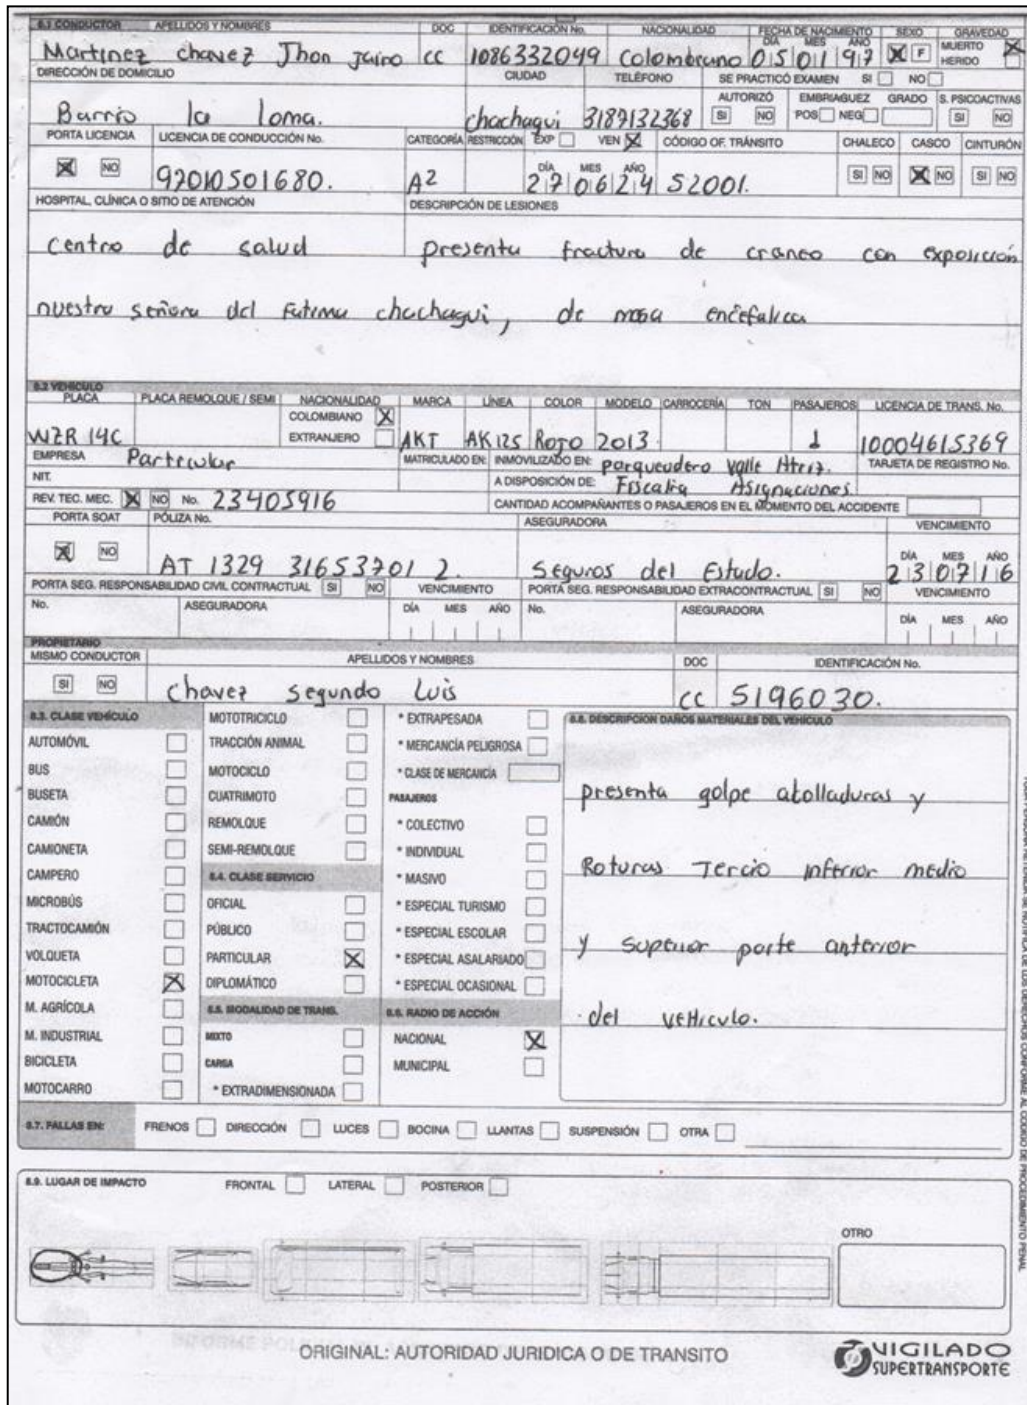 8.1 CONDUCTOR APELLIDOS Y NOMBRES DOC IDENTIFICACIÓN No. NACIONALIDAD FECHA DE NACIMIENTO SEXO GRAVEDAD
DÍA MES AÑO MUERTO
Martinez chavez Jhon Jairo cc 1086332049 Colombiano 05 01 97 F HERIDO
DIRECCIÓN DE DOMICILIO CIUDAD TELÉFONO SE PRACTICÓ EXAMEN SI NO
AUTORIZÓ EMBRIAGUEZ GRADO S. PSICOACTIVAS
Barrio la loma. chachagui 3187132368 SI NO POS NEG SI NO
PORTA LICENCIA LICENCIA DE CONDUCCIÓN No. CATEGORÍA RESTRICCIÓN EXP VEN CÓDIGO OF. TRÁNSITO CHALECO CASCO CINTURÓN
DÍA MES AÑO
NO 97010501680. A2 27 06 24 52001. SI NO NO SI NO
HOSPITAL, CLÍNICA O SITIO DE ATENCIÓN DESCRIPCIÓN DE LESIONES
Centro de salud presenta fractura de craneo con exposición
nuestra señora del Fatima chachagui, de masa encefalica
8.2 VEHICULO
PLACA PLACA REMOLQUE / SEMI NACIONALIDAD MARCA LÍNEA COLOR MODELO CARROCERÍA TON PASAJEROS LICENCIA DE TRANS. No.
COLOMBIANO
WZR 14C EXTRANJERO AKT AK125 Rojo 2013 1 10004615369
EMPRESA Particular MATRICULADO EN: INMOVILIZADO EN: parqueadero Valle Atriz. TARJETA DE REGISTRO No.
NIT. A DISPOSICIÓN DE: Fiscalia Asignaciones.
REV. TEC. MEC. NO No. 23405916 CANTIDAD ACOMPAÑANTES O PASAJEROS EN EL MOMENTO DEL ACCIDENTE
PORTA SOAT PÓLIZA No. ASEGURADORA VENCIMIENTO
DÍA MES AÑO
NO AT 1329 31653701 2. Seguros del Estado. 23 07 16
PORTA SEG. RESPONSABILIDAD CIVIL CONTRACTUAL SI NO VENCIMIENTO PORTA SEG. RESPONSABILIDAD EXTRACONTRACTUAL SI NO VENCIMIENTO
No. ASEGURADORA DÍA MES AÑO No. ASEGURADORA DÍA MES AÑO
PROPIETARIO
MISMO CONDUCTOR APELLIDOS Y NOMBRES DOC IDENTIFICACIÓN No.
SI NO chavez segundo Luis cc 5196030.
8.3. CLASE VEHÍCULO
AUTOMÓVIL
BUS
BUSETA
CAMIÓN
CAMIONETA
CAMPERO
MICROBÚS
TRACTOCAMIÓN
VOLQUETA
MOTOCICLETA
M. AGRÍCOLA
M. INDUSTRIAL
BICICLETA
MOTOCARRO
MOTOTRICICLO
TRACCIÓN ANIMAL
MOTOCICLO
CUATRIMOTO
REMOLQUE
SEMI-REMOLQUE
8.4. CLASE SERVICIO
OFICIAL
PÚBLICO
PARTICULAR
DIPLOMÁTICO
8.5. MODALIDAD DE TRANS.
MIXTO
CARGA
* EXTRADIMENSIONADA
* EXTRAPESADA
* MERCANCÍA PELIGROSA
* CLASE DE MERCANCÍA
PASAJEROS
* COLECTIVO
* INDIVIDUAL
* MASIVO
* ESPECIAL TURISMO
* ESPECIAL ESCOLAR
* ESPECIAL ASALARIADO
* ESPECIAL OCASIONAL
8.6. RADIO DE ACCIÓN
NACIONAL
MUNICIPAL
8.8. DESCRIPCION DAÑOS MATERIALES DEL VEHÍCULO
presenta golpe abolladuras y
Roturas Tercio inferior medio
y superior parte anterior
del vehiculo.
8.7. FALLAS EN: FRENOS DIRECCIÓN LUCES BOCINA LLANTAS SUSPENSIÓN OTRA
8.9. LUGAR DE IMPACTO FRONTAL LATERAL POSTERIOR
OTRO
ORIGINAL: AUTORIDAD JURIDICA O DE TRANSITO
VIGILADO
SUPERTRANSPORTE
DE LOS DERECHOS CONFORME AL CODIGO DE PROCEDIMIENTO PENAL